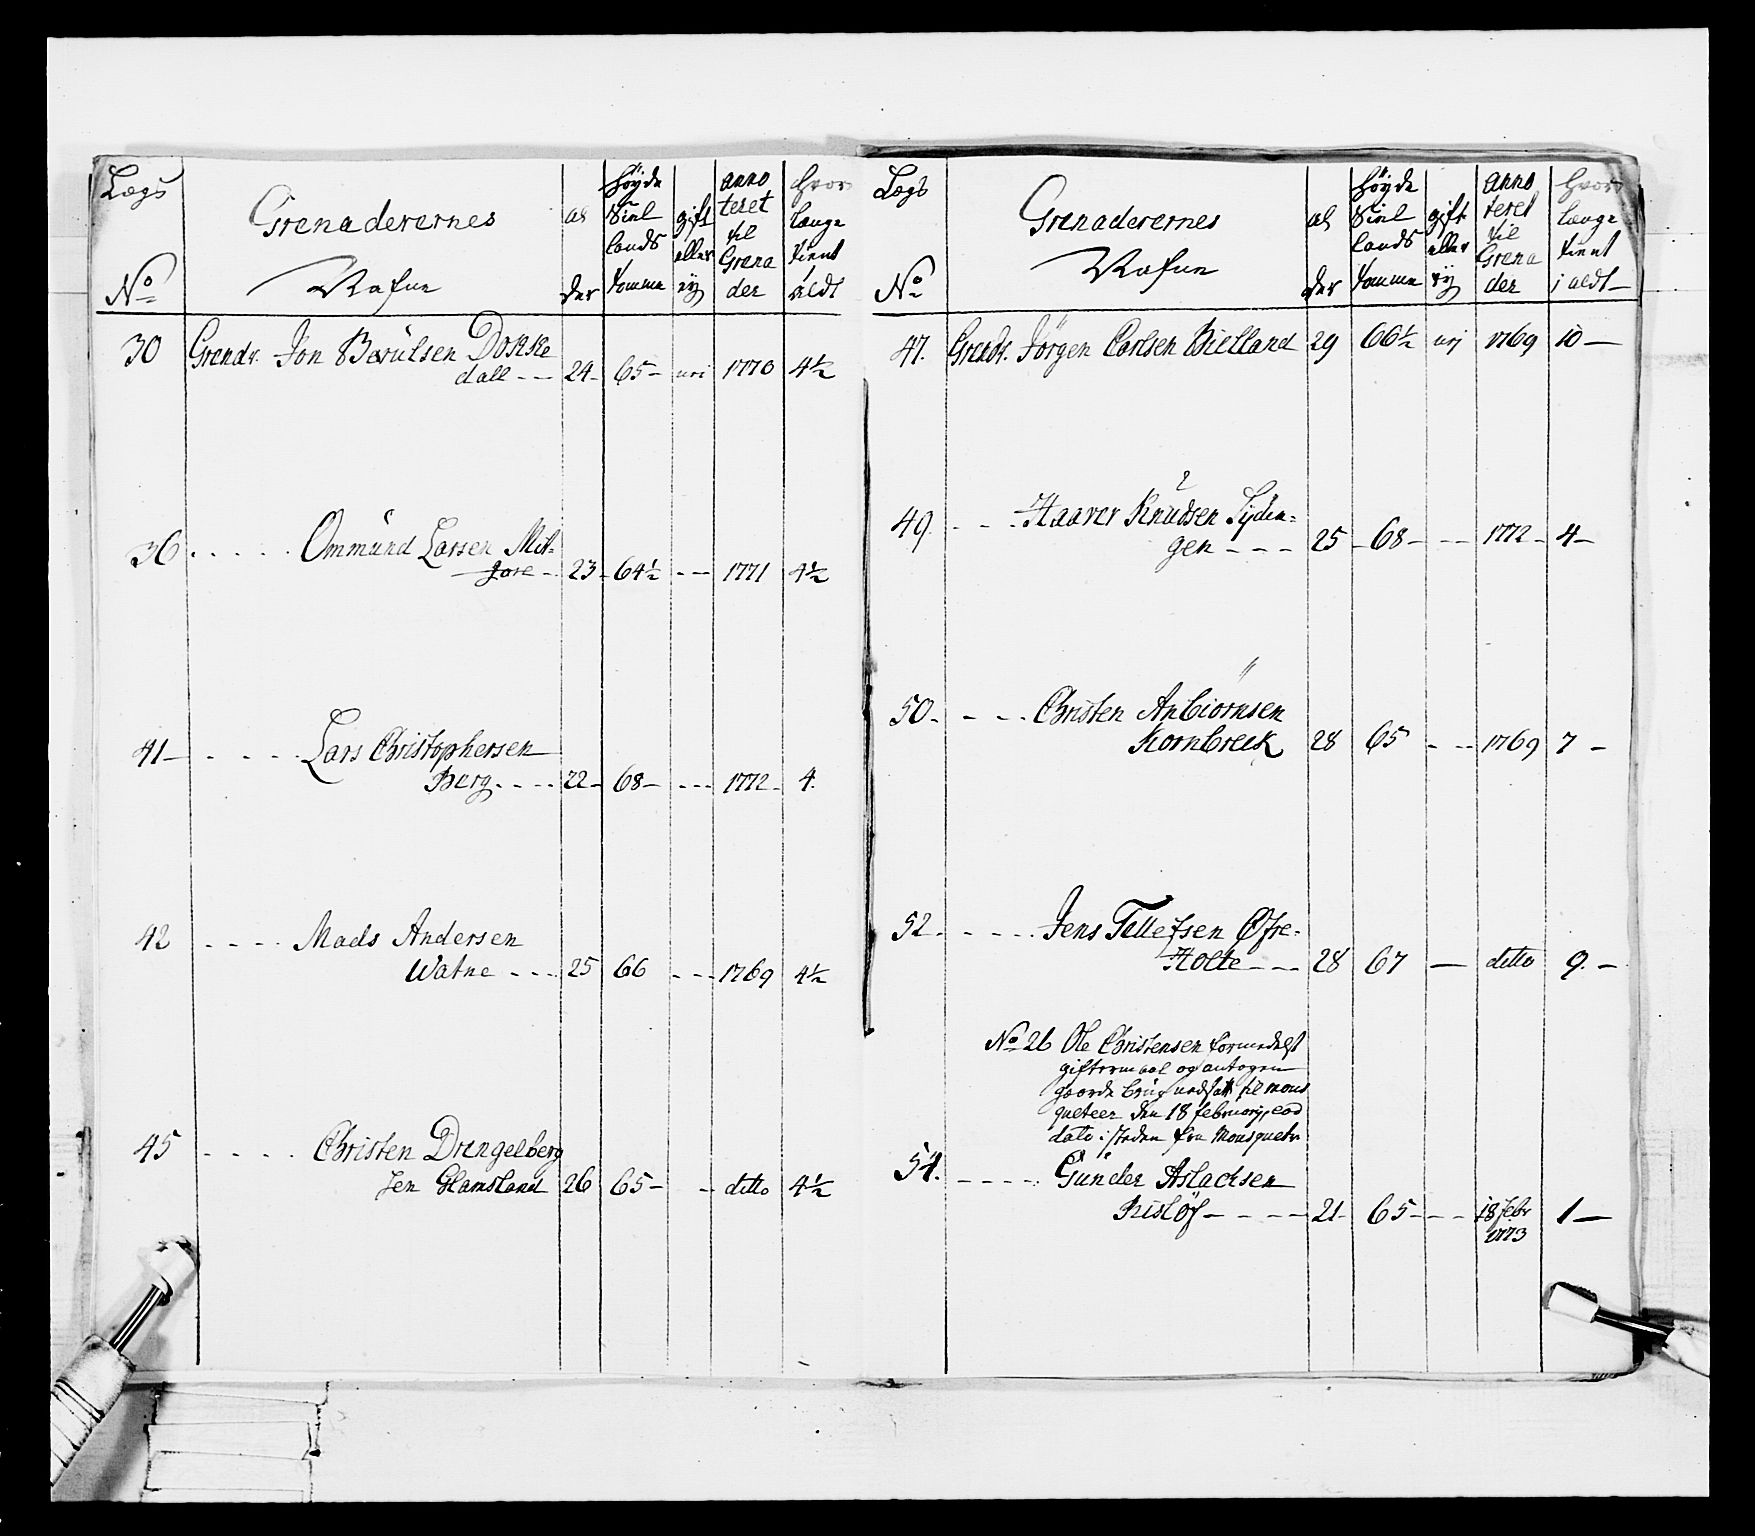 Lægs
No
Grenaderernes
Nafne
al
der
høyde
Siel
lands
tomme
gift
eller
ey
anno
teret
til
Grena
der
hvor
længe
tient
i aldt
30 Grendr. Jon Barülsen Doske
dall -- 24- 65- urj 1770 4½
36 . . . . . Ommünd Larsen Mit-
fore - 23- 64½ --- 1771 4½
41- . . . . Lars Christophersen
Berg. - - - 22- 68- --- 1772- 4.
42 - - - - Mads Andersen
Watne - - - 25 66 --- 1769 4½
45 - - - - Christen Drengelberg
sen Glamsland 26 65- - ditto 4½
Lægs
No
Grenaderernes
Nafne
al
der
høyde
Siel
lands
tomme
gift
eller
ey
anno
teret
til
Grena
der
hvor
længe
tient
i aldt-
47. Grendr. Jörgen Carlsen Bielland 29 66½ urj 1769 10-
49. - - - Haaver Knudsen Lyden=
gen - - - 25- 68- --- 1772- 4-
50. - - - Christen Anbiörnsen
Kornbreck 28 65 --- 1769 7 -
52. - - - - Jens Tellefsen Øfre-
Holte - - 28 67 - ditto 9. -
No 26 Ole Christensen formedelst
giftermaal og antagen
gaards brug nedsatt til mous
queteer den 18 february, eod
dato i steden fra Mousquetr
54. - - - - Günder Aslachsen
Risløf - - - - 21- 65- -- 18 febr 1-
1773